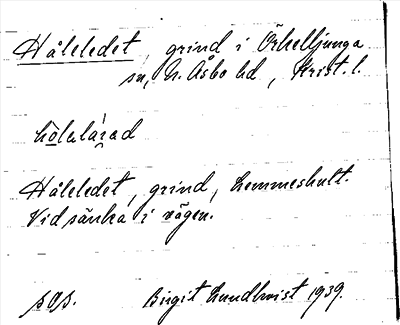 Håleledet, grind i Örkelljunga
sn, N. Åsbo hd, Krist. l.
hòlalárad
Håleledet, grind, Lemmeshult.
Vid sänka i vägen.
Birgit Lundkvist 1939.